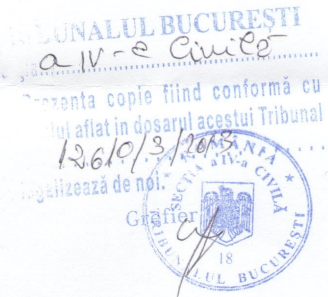 TRIBUNALUL BUCUREȘTI
a IV-a Civilă
Prezenta copie fiind conformă cu
aflat în dosarul acestui Tribunal
legalizează de noi.
Grefier
ROMANIA
SECTIA aIV-a CIVILĂ
18
TRIBUNALUL BUCUREȘTI